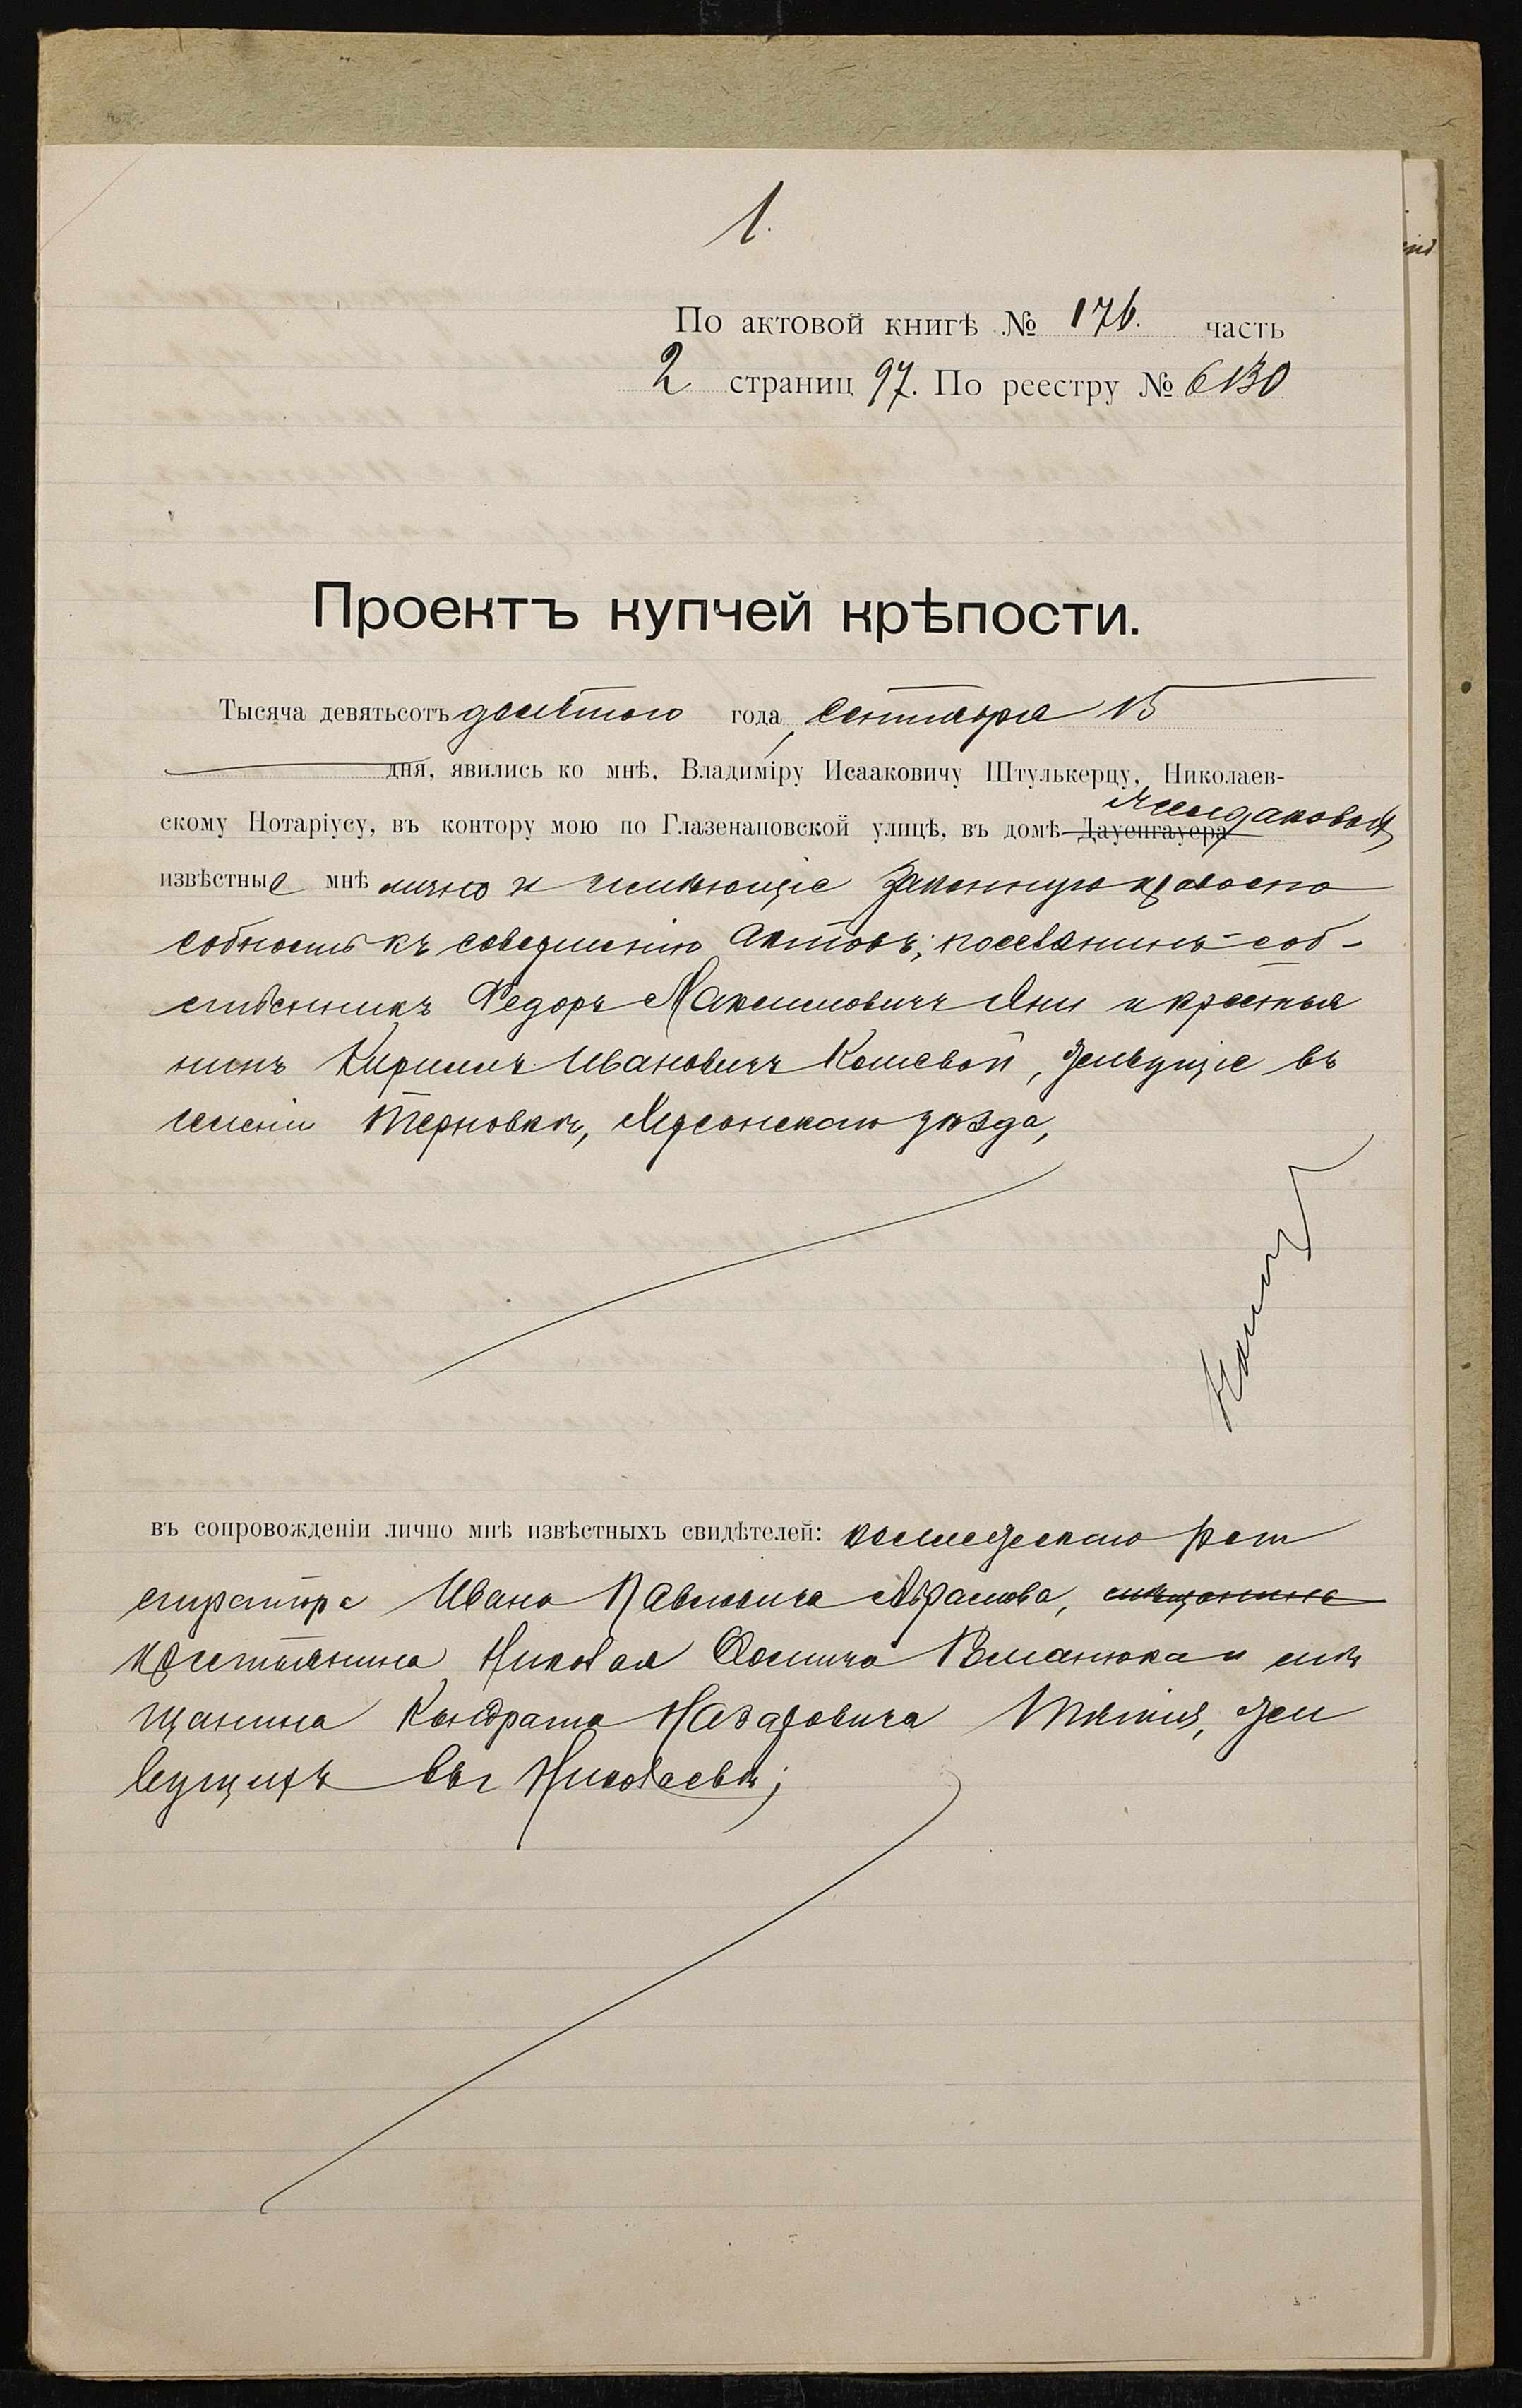 1.
По актовой книгѣ № 176. часть
2 страниц 97. По реестру № 6130
Проектъ купчей крѣпости.
Тысяча девятьсотъ десятого года, сентября 15
дня, явились ко мнѣ, Владиміру Исааковичу Штулькерцу, Николаев-
скому Нотаріусу, въ контору мою по Глазенаповской улицѣ, въ домѣ Дауенгауера
извѣстные мнѣ лично и имѣющіе законную правоспо
собность къ совершенію актовъ; поселянинъ-соб-
ственникъ Федоръ Максимовичъ Яни и крестья
нинъ Кириллъ Ивановичъ Кошевой, живущіе въ
селеніи Терновкѣ, Херсонскаго уѣзда,
въ сопровожденіи лично мнѣ извѣстныхъ свидѣтелей: коллежскаго реги
стратора Ивана Павловича Абрамова, мѣщанина
крестьянина Николая Фомича и мѣ
щанина Кондрата Назаровича жи
вущихъ въ г Николаевѣ;